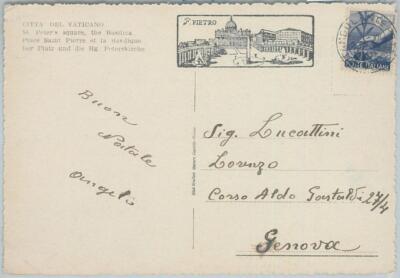 CITTA' DEL VATICANO
St. Peter's square, the Basilica
Place Saint Pierre et la Basilique
Der Platz und die Hg. Peterskirche
S. PIETRO
POSTE ITALIANE
Buon
Natale
Angelo
Sig. Lucattini
Lorenzo
Corso Aldo Gastaldi 27/4
Genova